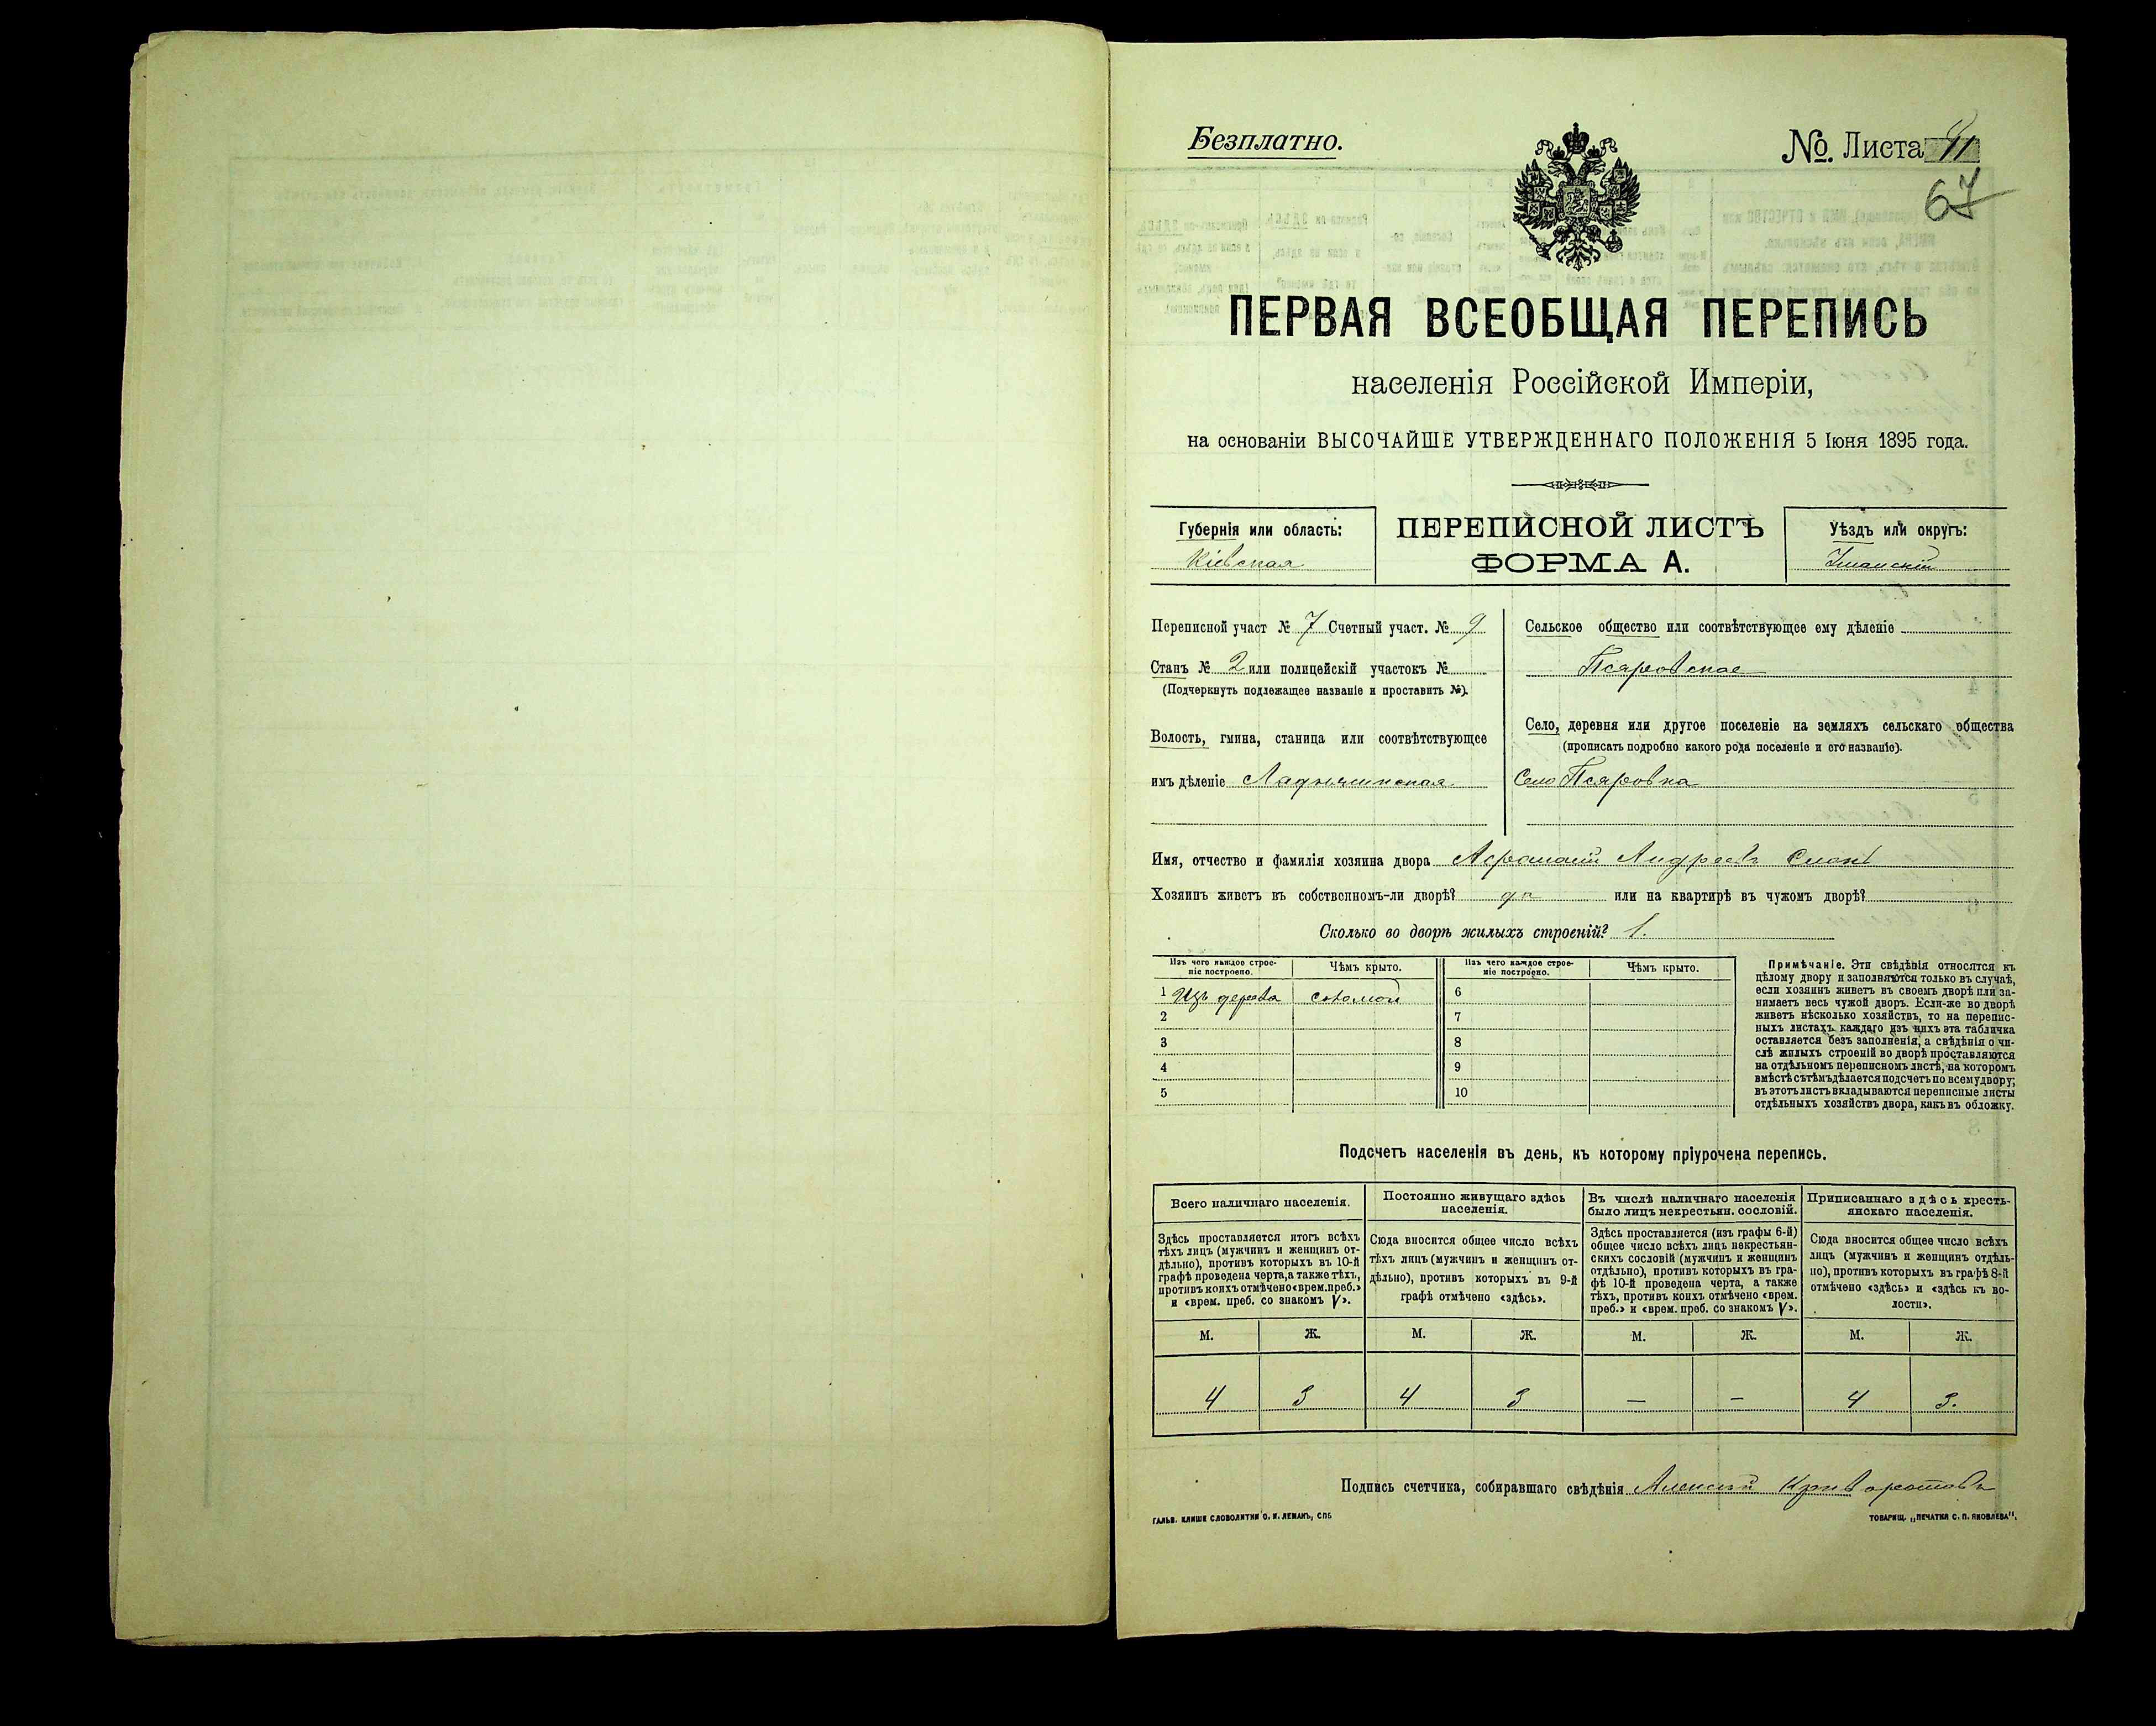 Безплатно.
№. Листа 41
67
ПЕРВАЯ ВСЕОБЩАЯ ПЕРЕПИСЬ
населенія Россійской Имперіи,
на основаніи ВЫСОЧАЙШЕ УТВЕРЖДЕННАГО ПОЛОЖЕНІЯ 5 Іюня 1895 года.
Губернія или область:
Кіевская
ПЕРЕПИСНОЙ ЛИСТЪ
ФОРМА А.
Уѣздъ или округъ:
Уманскій
Переписной участ № 7 Счетный участ. № 9
Станъ № 2 или полицейскій участокъ №
(Подчеркнуть подлежащее названіе и проставить №).
Волость, гмина, станица или соотвѣтствующее
имъ дѣленіе Ладыжинская
Сельское общество или соотвѣтствующее ему дѣленіе
Псяровское
Село, деревня или другое поселеніе на земляхъ сельскаго общества
(прописать подробно какого рода поселеніе и его названіе).
Село Псяровка
Имя, отчество и фамилія хозяина двора Афанасій Андреевъ
Хозяинъ живетъ въ собственномъ-ли дворѣ? да или на квартирѣ въ чужомъ дворѣ?
Сколько во дворѣ жилыхъ строеній? 1.
Изъ чего каждое строе-
ніе построено.
Чѣмъ крыто.
Изъ чего каждое строе-
ніе построено.
Чѣмъ крыто.
1 Изъ дерева соломой 6
2 7
3 8
4 9
5 10
Примѣчаніе. Эти свѣдѣнія относятся къ
цѣлому двору и заполняются только въ случаѣ,
если хозяинъ живетъ въ своемъ дворѣ или за-
нимаетъ весь чужой дворъ. Если-же во дворѣ
живетъ нѣсколько хозяйствъ, то на перепис-
ныхъ листахъ каждаго изъ нихъ эта табличка
оставляется безъ заполненія, а свѣдѣнія о чи-
слѣ жилыхъ строеній во дворѣ проставляются
на отдѣльномъ переписномъ листѣ, на которомъ
вмѣстѣ съ тѣмъ дѣлается подсчетъ по всему двору;
въ этотъ листъ вкладываются переписные листы
отдѣльныхъ хозяйствъ двора, какъ въ обложку.
Подсчетъ населенія въ день, къ которому пріурочена перепись.
Всего наличнаго населенія.
Здѣсь проставляется итогъ всѣхъ
тѣхъ лицъ (мужчинъ и женщинъ от-
дѣльно), противъ которыхъ въ 10-й
графѣ проведена черта, а также тѣхъ,
противъ коихъ отмѣчено «врем. преб.»
и «врем. преб. со знакомъ V».
Постоянно живущаго здѣсь
населенія.
Сюда вносится общее число всѣхъ
тѣхъ лицъ (мужчинъ и женщинъ от-
дѣльно), противъ которыхъ въ 9-й
графѣ отмѣчено «здѣсь».
Въ числѣ наличнаго населенія
было лицъ некрестьян. сословій.
Здѣсь проставляется (изъ графы 6-й)
общее число всѣхъ лицъ некрестьян-
скихъ сословій (мужчинъ и женщинъ
отдѣльно), противъ которыхъ въ гра-
фѣ 10-й проведена черта, а также
тѣхъ, противъ коихъ отмѣчено «врем.
преб.» и «врем. преб. со знакомъ V».
Приписаннаго здѣсь кресть-
янскаго населенія.
Сюда вносится общее число всѣхъ
лицъ (мужчинъ и женщинъ отдѣль-
но), противъ которыхъ въ графѣ 8-й
отмѣчено «здѣсь» и «здѣсь къ во-
лости».
М. Ж. М. Ж. М. Ж. М. Ж.
4 3 4 3 — — 4 3.
Подпись счетчика, собиравшаго свѣдѣнія Алексѣй Криворотовъ
ГАЛЬВ. КЛИШЕ СЛОВОЛИТНИ О. И. ЛЕМАНЪ, СПБ
ТОВАРИЩ. „ПЕЧАТНЯ С. П. ЯКОВЛЕВА".